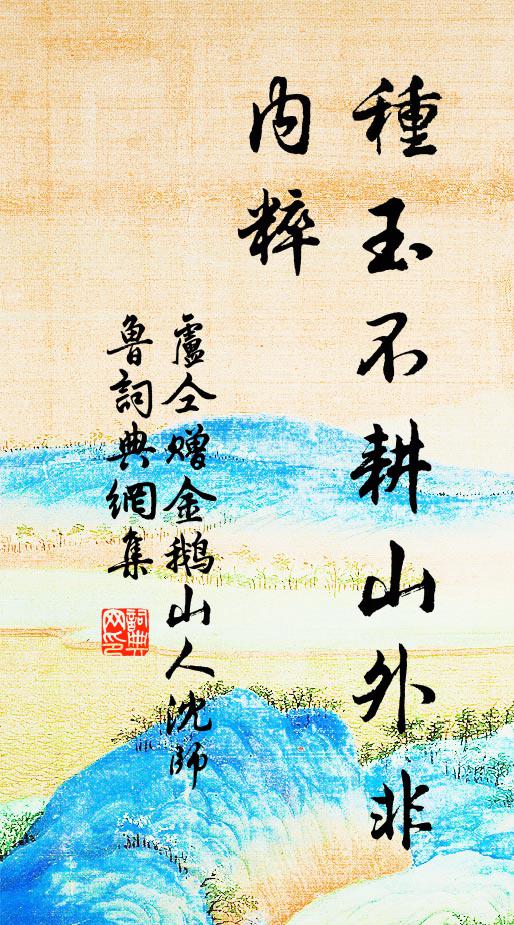 種玉不耕山外非
内粹
盧仝赠金鵝山人沈師
魯詞典網集
詞典